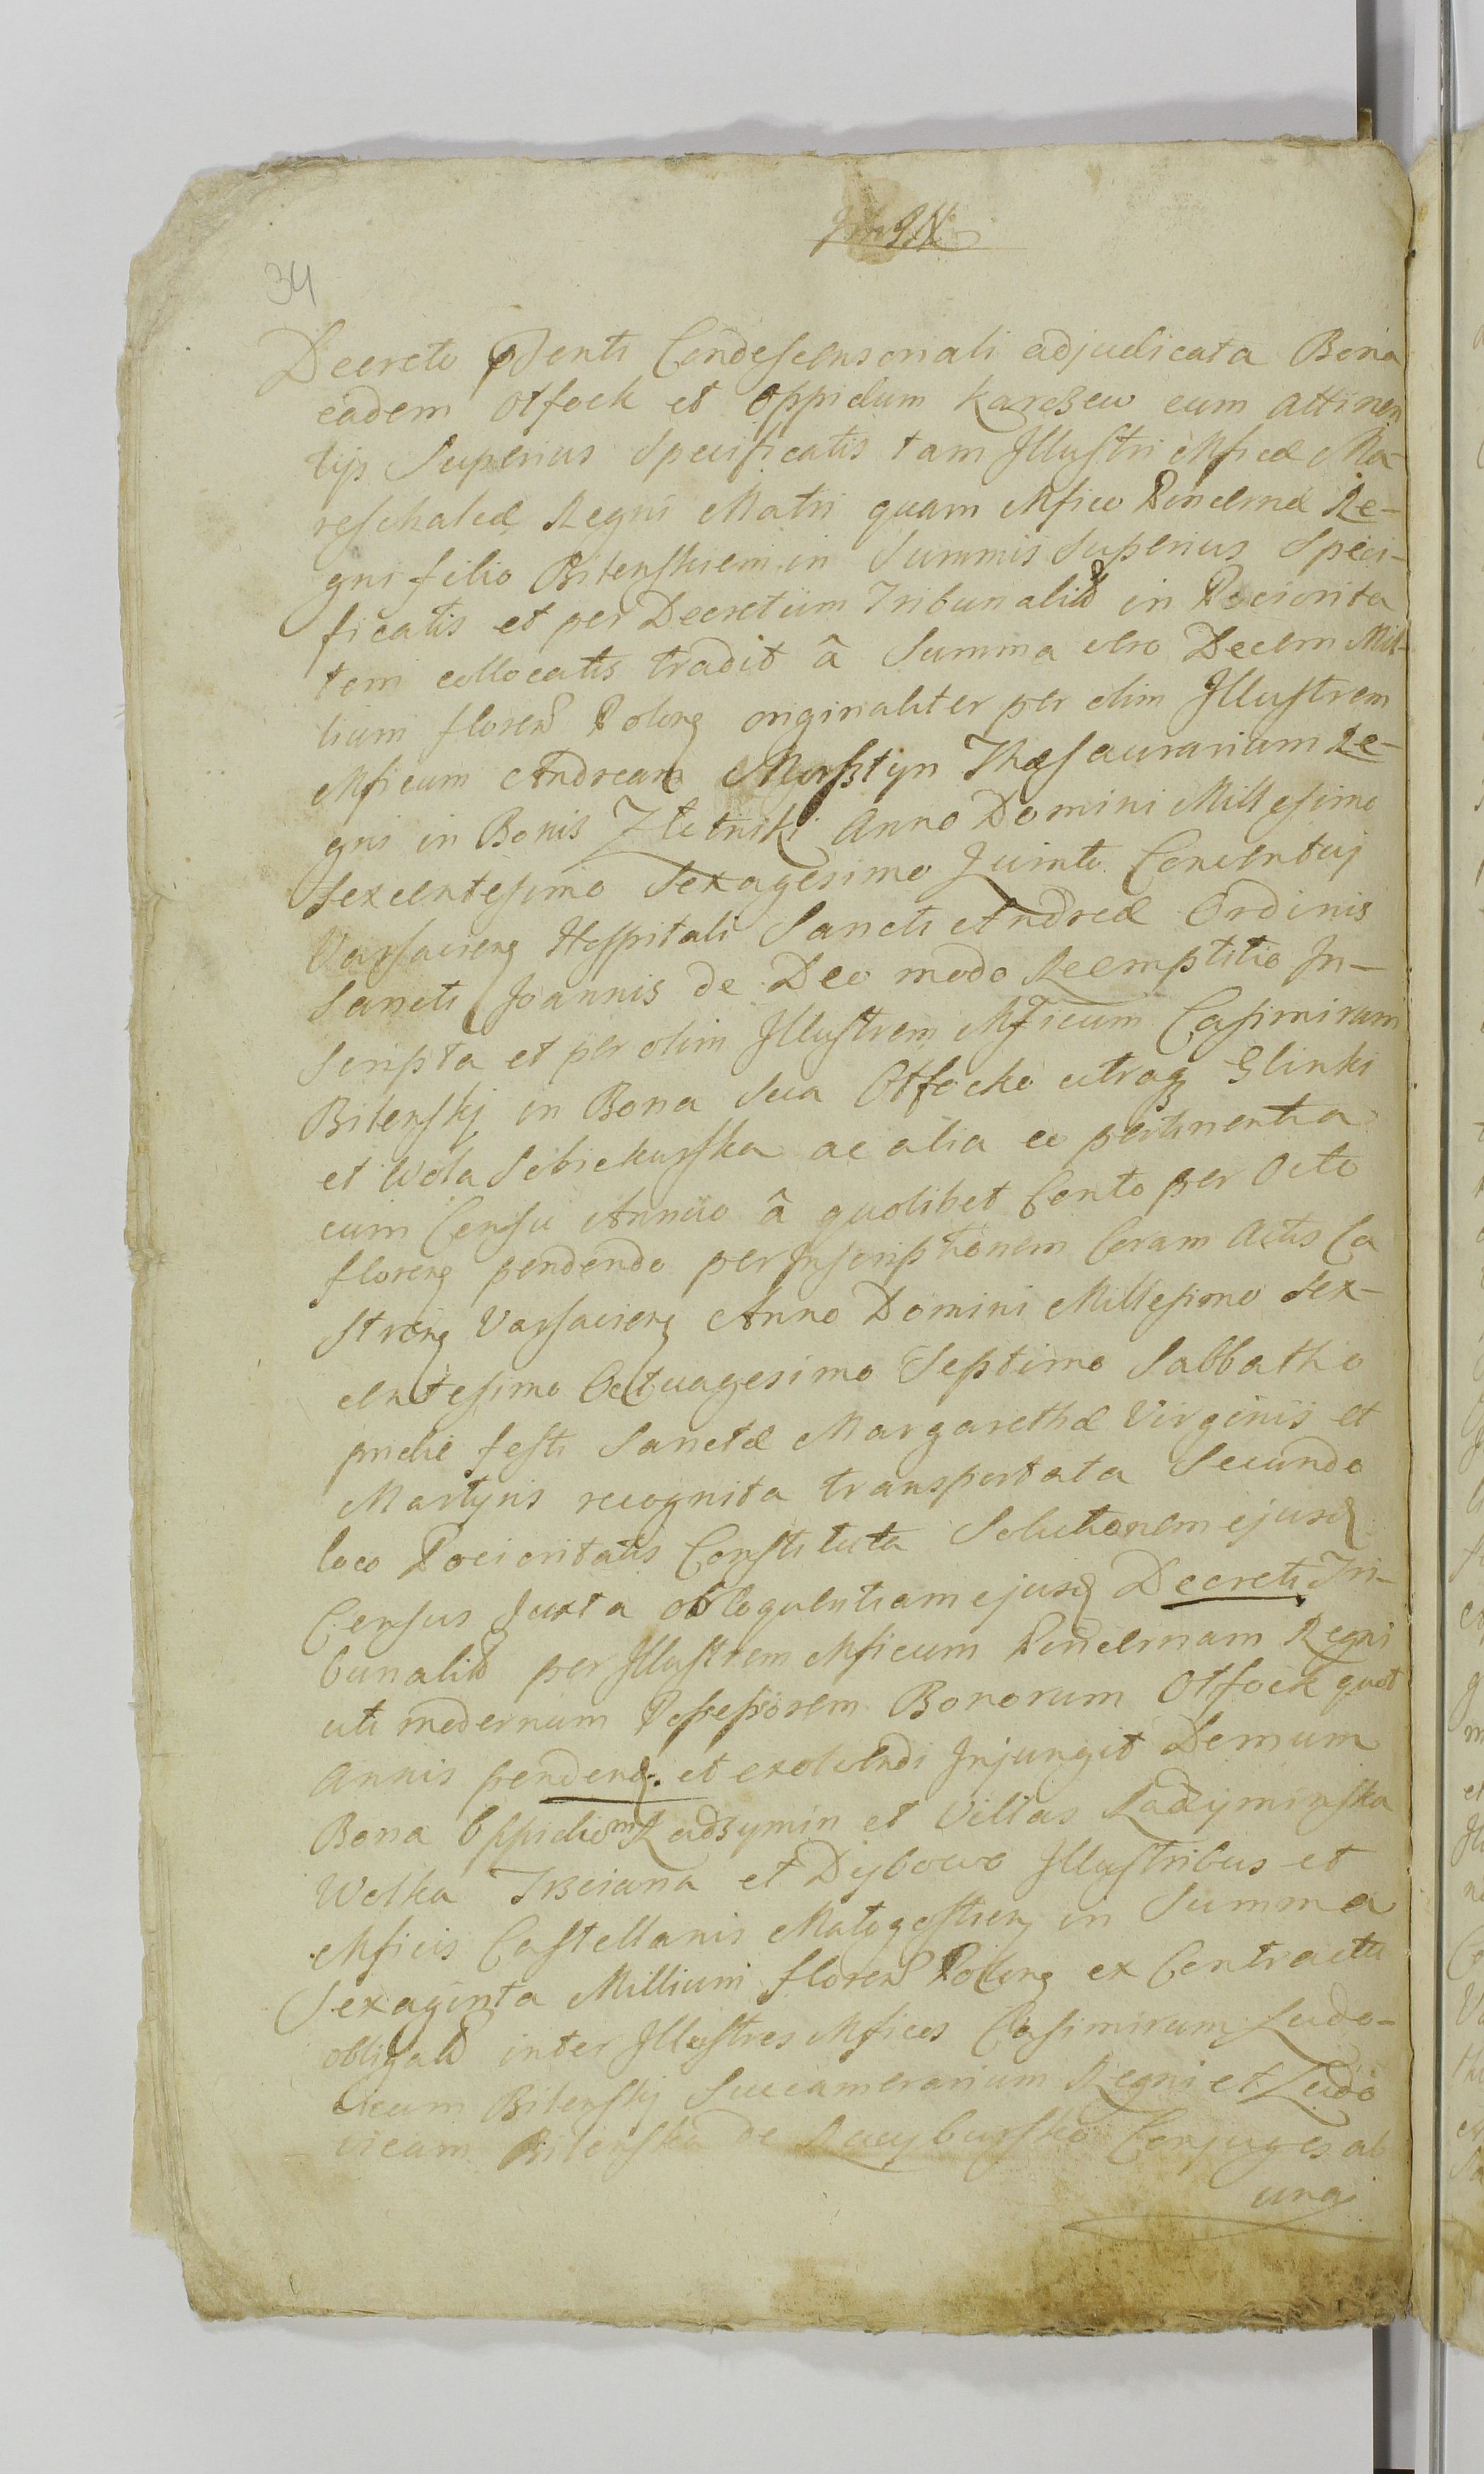 34
Decreto pdenti Condescensorali adjudicata Bona
eadem Otfock et Oppidum Karczew cum attinen
tijs Superius Specificatis tam Illustri Mficæ Ma-
reschalcæ Regni Matri quam Mfico Pincernæ Re-
gni filio Bilenskiem in Summis Superius Speci-
ficatis et per Decretum Tribunalitd in Pociorita
tem collocatis tradit â Summa vero Decem Mil-
lium floren Polong originaliter per olim Illustrem
Mficum Andream Morsztyn Thesaurarium Re-
gni in Bonis Zlotniki Anno Domini Millesimo
Sexcentesimo Sexagesimo Quinto Conventuj
Varsavieng Hospitali Sancti Andreæ Ordinis
Sancti Joannis de Deo modo Reemptitio In-
scripta et per olim Illustrem Mficum Casimirum
Bilenskj in Bona Sua Otfocko utraq Glinki
et Wola Sobiekurska ac alia eo pertinentia
cum Censu Annuo â quolibet Cento per Octo
floreng pendendo per Inscriptionem Coram Actis Ca
streng Varsavieng Anno Domini Millesimo Sex-
centesimo Octuagesimo Septimo Sabbatho
pridie festi Sanctæ Margarethæ Virginis et
Martyris recognita transportata Secundo
loco Pocioritatis Constituta Solutionem ejusd
Census Juxta obloquentiam ejusd Decreti Tri-
bunalitd per Illustrem Mficum Pincernam Regni
uti modernum Possessorem Bonorum Otfock quot
annis pendend. et exolvendi Injungit Demum
Bona Oppidiom Radzymin et Villas Radzyminska
Wolka Trzciana et Dybowo Illustribus et
Mficis Castellanis Malogostien in Summa
Sexaginta Millium floren Polong ex Contractu
obligatd inter Illustres Mficos Casimirum Ludo-
vicum Bilenskj Succamerarium Regni et Ludo
vicam Bilenska de Conjuges ab
una